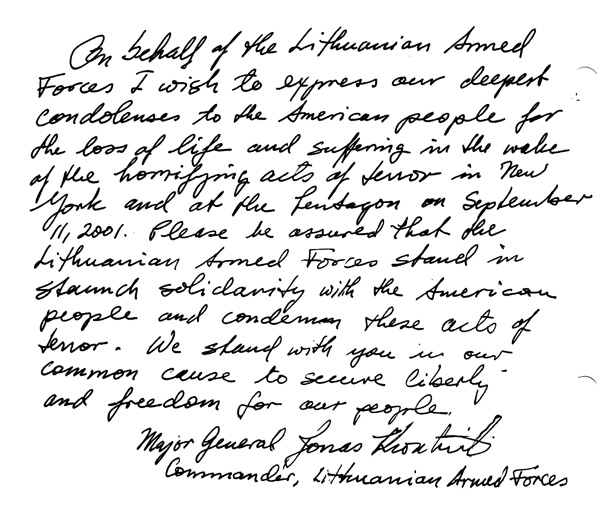 On behalf of the Lithuanian Armed
Forces I wish to express our deepest
condolenses to the American people for
the loss of life and suffering in the wake
of the horrifying acts of terror in New
York and at the Pentagon on September
11, 2001. Please be assured that the
Lithuanian Armed Forces stand in
staunch solidarity with the American
people and condemn these acts of
terror. We stand with you in our
common cause to secure liberty
and freedom for our people.
Major General Jonas
Commander, Lithuanian Armed Forces